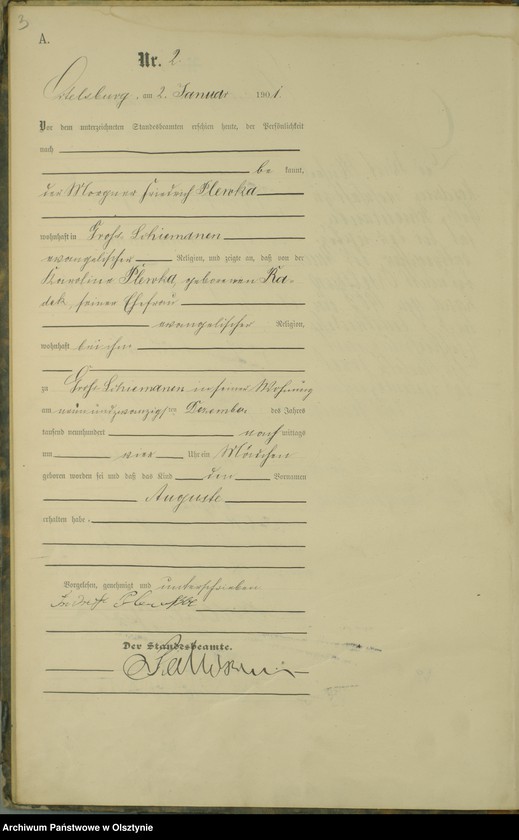 3
A.
Nr. 2
Ortelsburg, am 2. Januar 1901.
Vor dem unterzeichneten Standesbeamten erschien heute, der Persönlichkeit
nach
be kannt,
der Friedrich Plewka
wohnhaft in Groß Schiemanen
evangelischer Religion, und zeigte an, daß von der
Karoline Plewka, geborenen Ka-
dek, seiner Ehefrau
evangelischer Religion,
wohnhaft bei ihm
zu Groß Schiemanen in seiner Wohnung
am neunundzwanzigsten Dezember des Jahres
tausend neunhundert nach mittags
um vier Uhr ein Mädchen
geboren worden sei und daß das Kind den Vornamen
Auguste
erhalten habe.
Vorgelesen, genehmigt und unterschrieben
Friedrich Plewka
Der Standesbeamte.
Archiwum Państwowe w Olsztynie